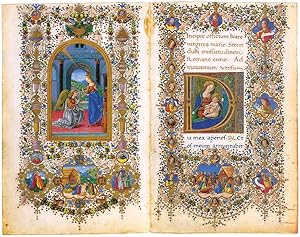 Incipit officium beate
virginis marie. Secun
dum consuetudinem
Romane curie. Ad
matutinum versus.
D
mea aperies. Et
os meum annuntiabit